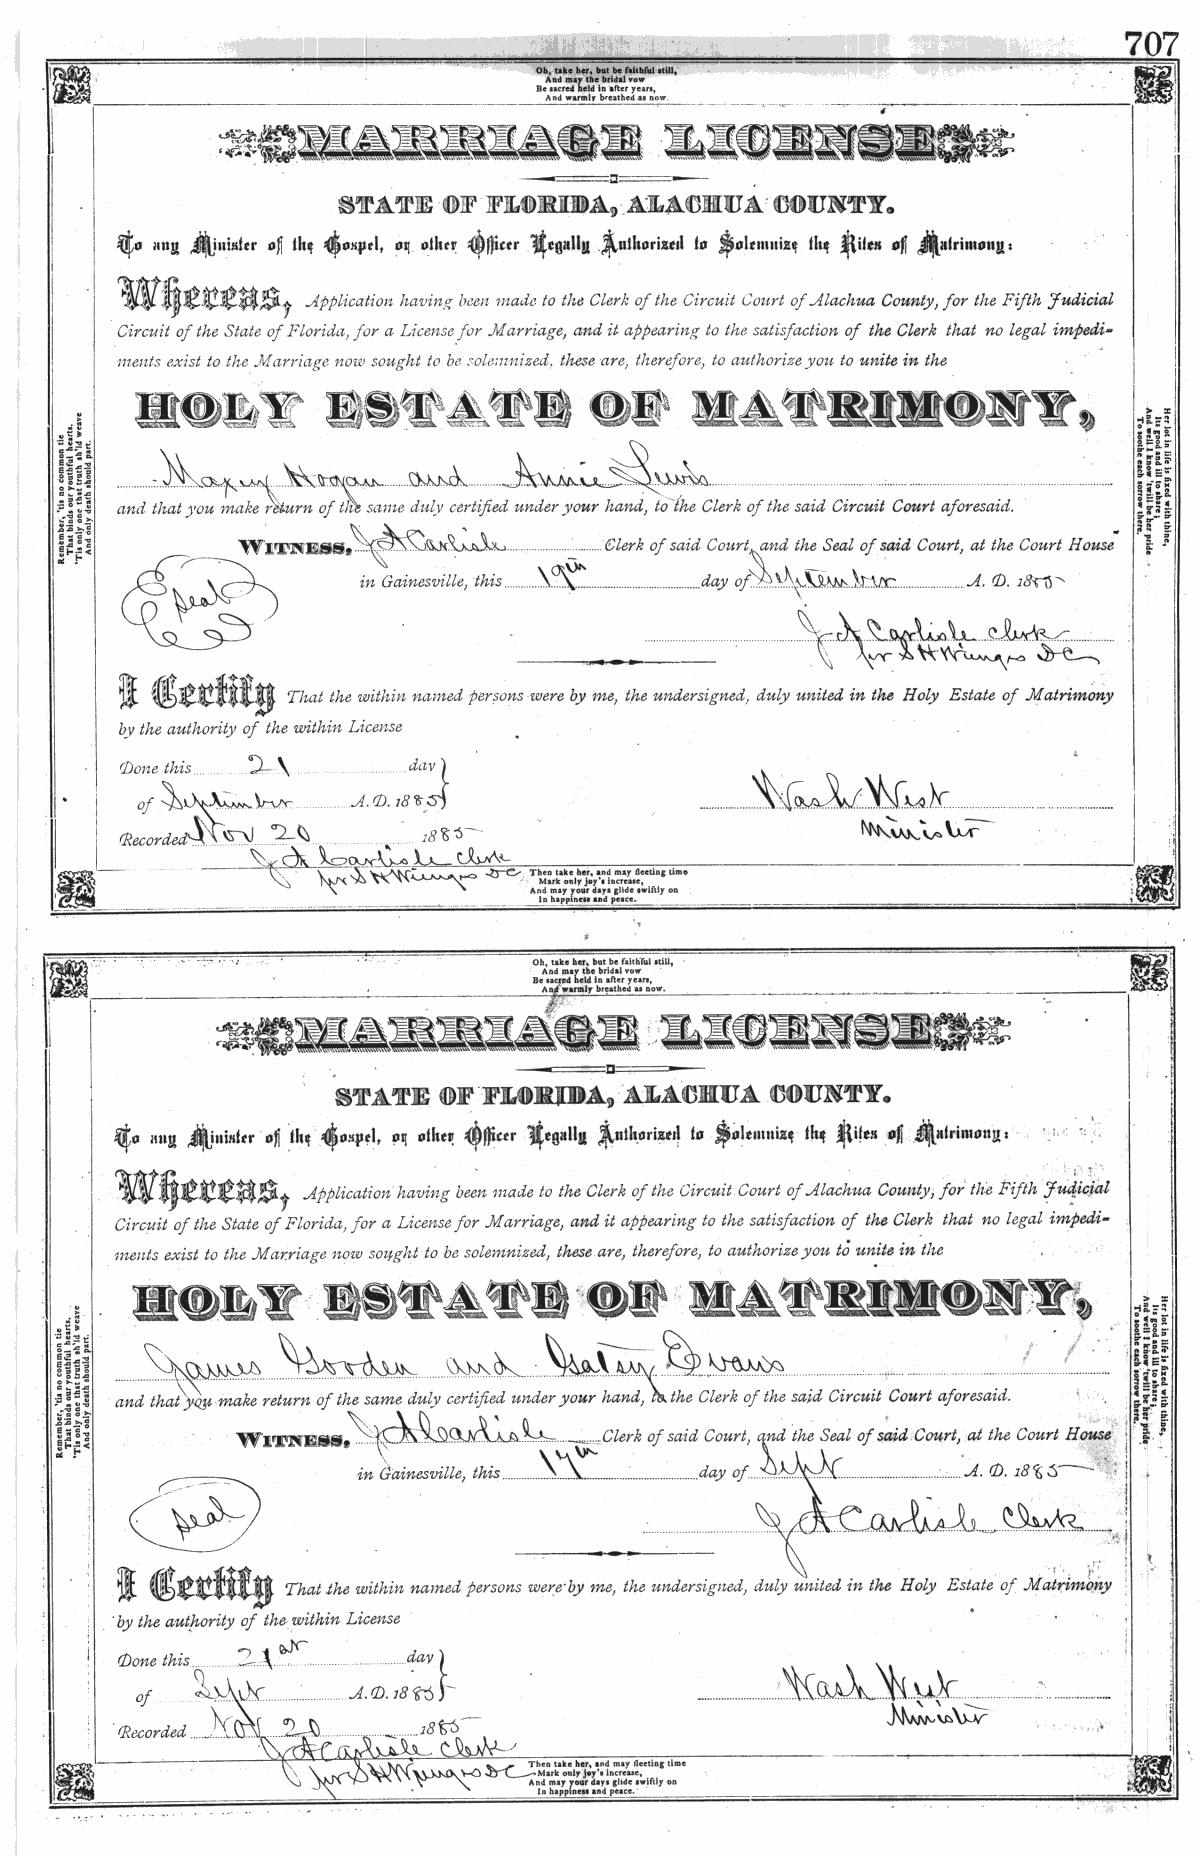 707
Oh, take her, but be faithful still,
And may the bridal vow
Be sacred held in after years,
And warmly breathed as now.
MARRIAGE LICENSE
STATE OF FLORIDA, ALACHUA COUNTY.
To any Minister of the Gospel, or other Officer Legally Authorized to Solemnize the Rites of Matrimony:
Whereas, Application having been made to the Clerk of the Circuit Court of Alachua County, for the Fifth Judicial
Circuit of the State of Florida, for a License for Marriage, and it appearing to the satisfaction of the Clerk that no legal impedi-
ments exist to the Marriage now sought to be solemnized, these are, therefore, to authorize you to unite in the
HOLY ESTATE OF MATRIMONY,
Maxey Hogan and Annie Lewis
and that you make return of the same duly certified under your hand, to the Clerk of the said Circuit Court aforesaid.
WITNESS, J A Carlisle Clerk of said Court, and the Seal of said Court, at the Court House
in Gainesville, this 19th day of September A. D. 1885
Seal
J A Carlisle Clerk
pr S H Wienges DC
I Certify That the within named persons were by me, the undersigned, duly united in the Holy Estate of Matrimony
by the authority of the within License
Done this 21 day
of September A. D. 1885
Wash West
Minister
Recorded Nov 20 1885
J A Carlisle Clerk
pr S H Wienges DC
Then take her, and may fleeting time
Mark only joy's increase,
And may your days glide swiftly on
In happiness and peace.
Remember, 'tis no common tie
That binds our youthful hearts,
'Tis only one that truth sh'ld weave
And only death should part.
Her lot in life is fixed with thine,
Its good and ill to share;
And well I know 'twill be her pride
To soothe each sorrow there.
Oh, take her, but be faithful still,
And may the bridal vow
Be sacred held in after years,
And warmly breathed as now.
MARRIAGE LICENSE
STATE OF FLORIDA, ALACHUA COUNTY.
To any Minister of the Gospel, or other Officer Legally Authorized to Solemnize the Rites of Matrimony:
Whereas, Application having been made to the Clerk of the Circuit Court of Alachua County, for the Fifth Judicial
Circuit of the State of Florida, for a License for Marriage, and it appearing to the satisfaction of the Clerk that no legal impedi-
ments exist to the Marriage now sought to be solemnized, these are, therefore, to authorize you to unite in the
HOLY ESTATE OF MATRIMONY,
James Gooden and Gatsy Evans
and that you make return of the same duly certified under your hand, to the Clerk of the said Circuit Court aforesaid.
WITNESS, J A Carlisle Clerk of said Court, and the Seal of said Court, at the Court House
in Gainesville, this 17th day of Sept A. D. 1885
Seal
J A Carlisle Clerk
I Certify That the within named persons were by me, the undersigned, duly united in the Holy Estate of Matrimony
by the authority of the within License
Done this 21st day
of Sept A. D. 1885
Wash West
Minister
Recorded Nov 20 1885
J A Carlisle Clerk
pr S H Wienges DC
Then take her, and may fleeting time
Mark only joy's increase,
And may your days glide swiftly on
In happiness and peace.
Remember, 'tis no common tie
That binds our youthful hearts,
'Tis only one that truth sh'ld weave
And only death should part.
Her lot in life is fixed with thine,
Its good and ill to share;
And well I know 'twill be her pride
To soothe each sorrow there.